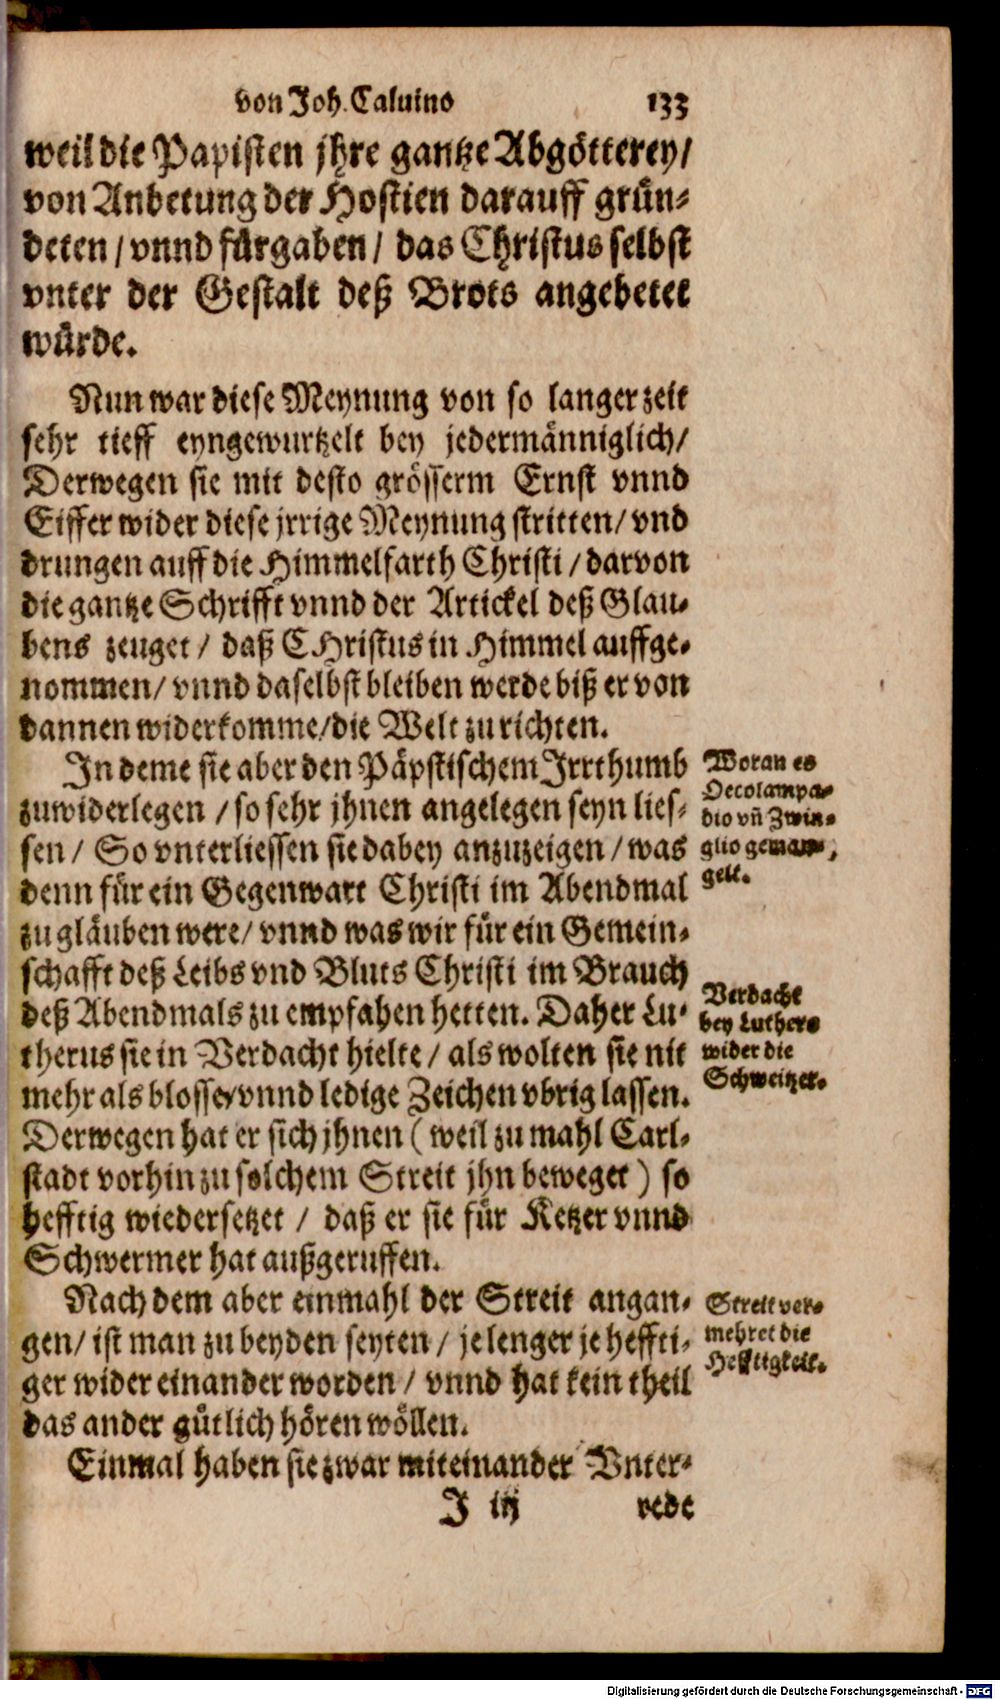 von Joh. Caluino 133
weil die Papisten jhre gantze Abgötterey/
von Anbetung der Hostien darauff grün-
deten / vnnd fürgaben / das Christus selbst
vnter der Gestalt deß Brots angebetet
würde.
Nun war diese Meynung von so langer zeit
sehr tieff eyngewurtzelt bey jedermänniglich/
Derwegen sie mit desto grösserm Ernst vnnd
Eiffer wider diese jrrige Meynung stritten/ vnd
drungen auff die Himmelfarth Christi / darvon
die gantze Schrifft vnnd der Artickel deß Glau-
bens zeuget / daß CHristus in Himmel auffge-
nommen/ vnnd daselbst bleiben werde biß er von
dannen widerkomme/die Welt zu richten.
In deme sie aber den Päpstischem Irrthumb
zuwiderlegen / so sehr jhnen angelegen seyn lies-
sen / So vnterliessen sie dabey anzuzeigen / was
denn für ein Gegenwart Christi im Abendmal
zu gläuben were/ vnnd was wir für ein Gemein-
schafft deß Leibs vnd Bluts Christi im Brauch
deß Abendmals zu empfahen hetten. Daher Lu-
therus sie in Verdacht hielte / als wolten sie nit
mehr als blosse/vnnd ledige Zeichen vbrig lassen.
Derwegen hat er sich jhnen ( weil zu mahl Carl-
stadt vorhin zu solchem Streit jhn beweget ) so
hefftig wiedersetzet / daß er sie für Ketzer vnnd
Schwermer hat außgeruffen.
Nach dem aber einmahl der Streit angan-
gen/ ist man zu beyden seyten / je lenger je heffti-
ger wider einander worden / vnnd hat kein theil
das ander gütlich hören wöllen.
Einmal haben sie zwar miteinander Vnter-
J iij rede
Woran es
Oecolampa-
dio vñ Zwin-
glio geman-
gelt.
Verdacht
bey Luthero
wider die
Schweitzer.
Streit ver-
mehret die
Hefftigkeit.
Digitalisierung gefördert durch die Deutsche Forschungsgemeinschaft - DFG